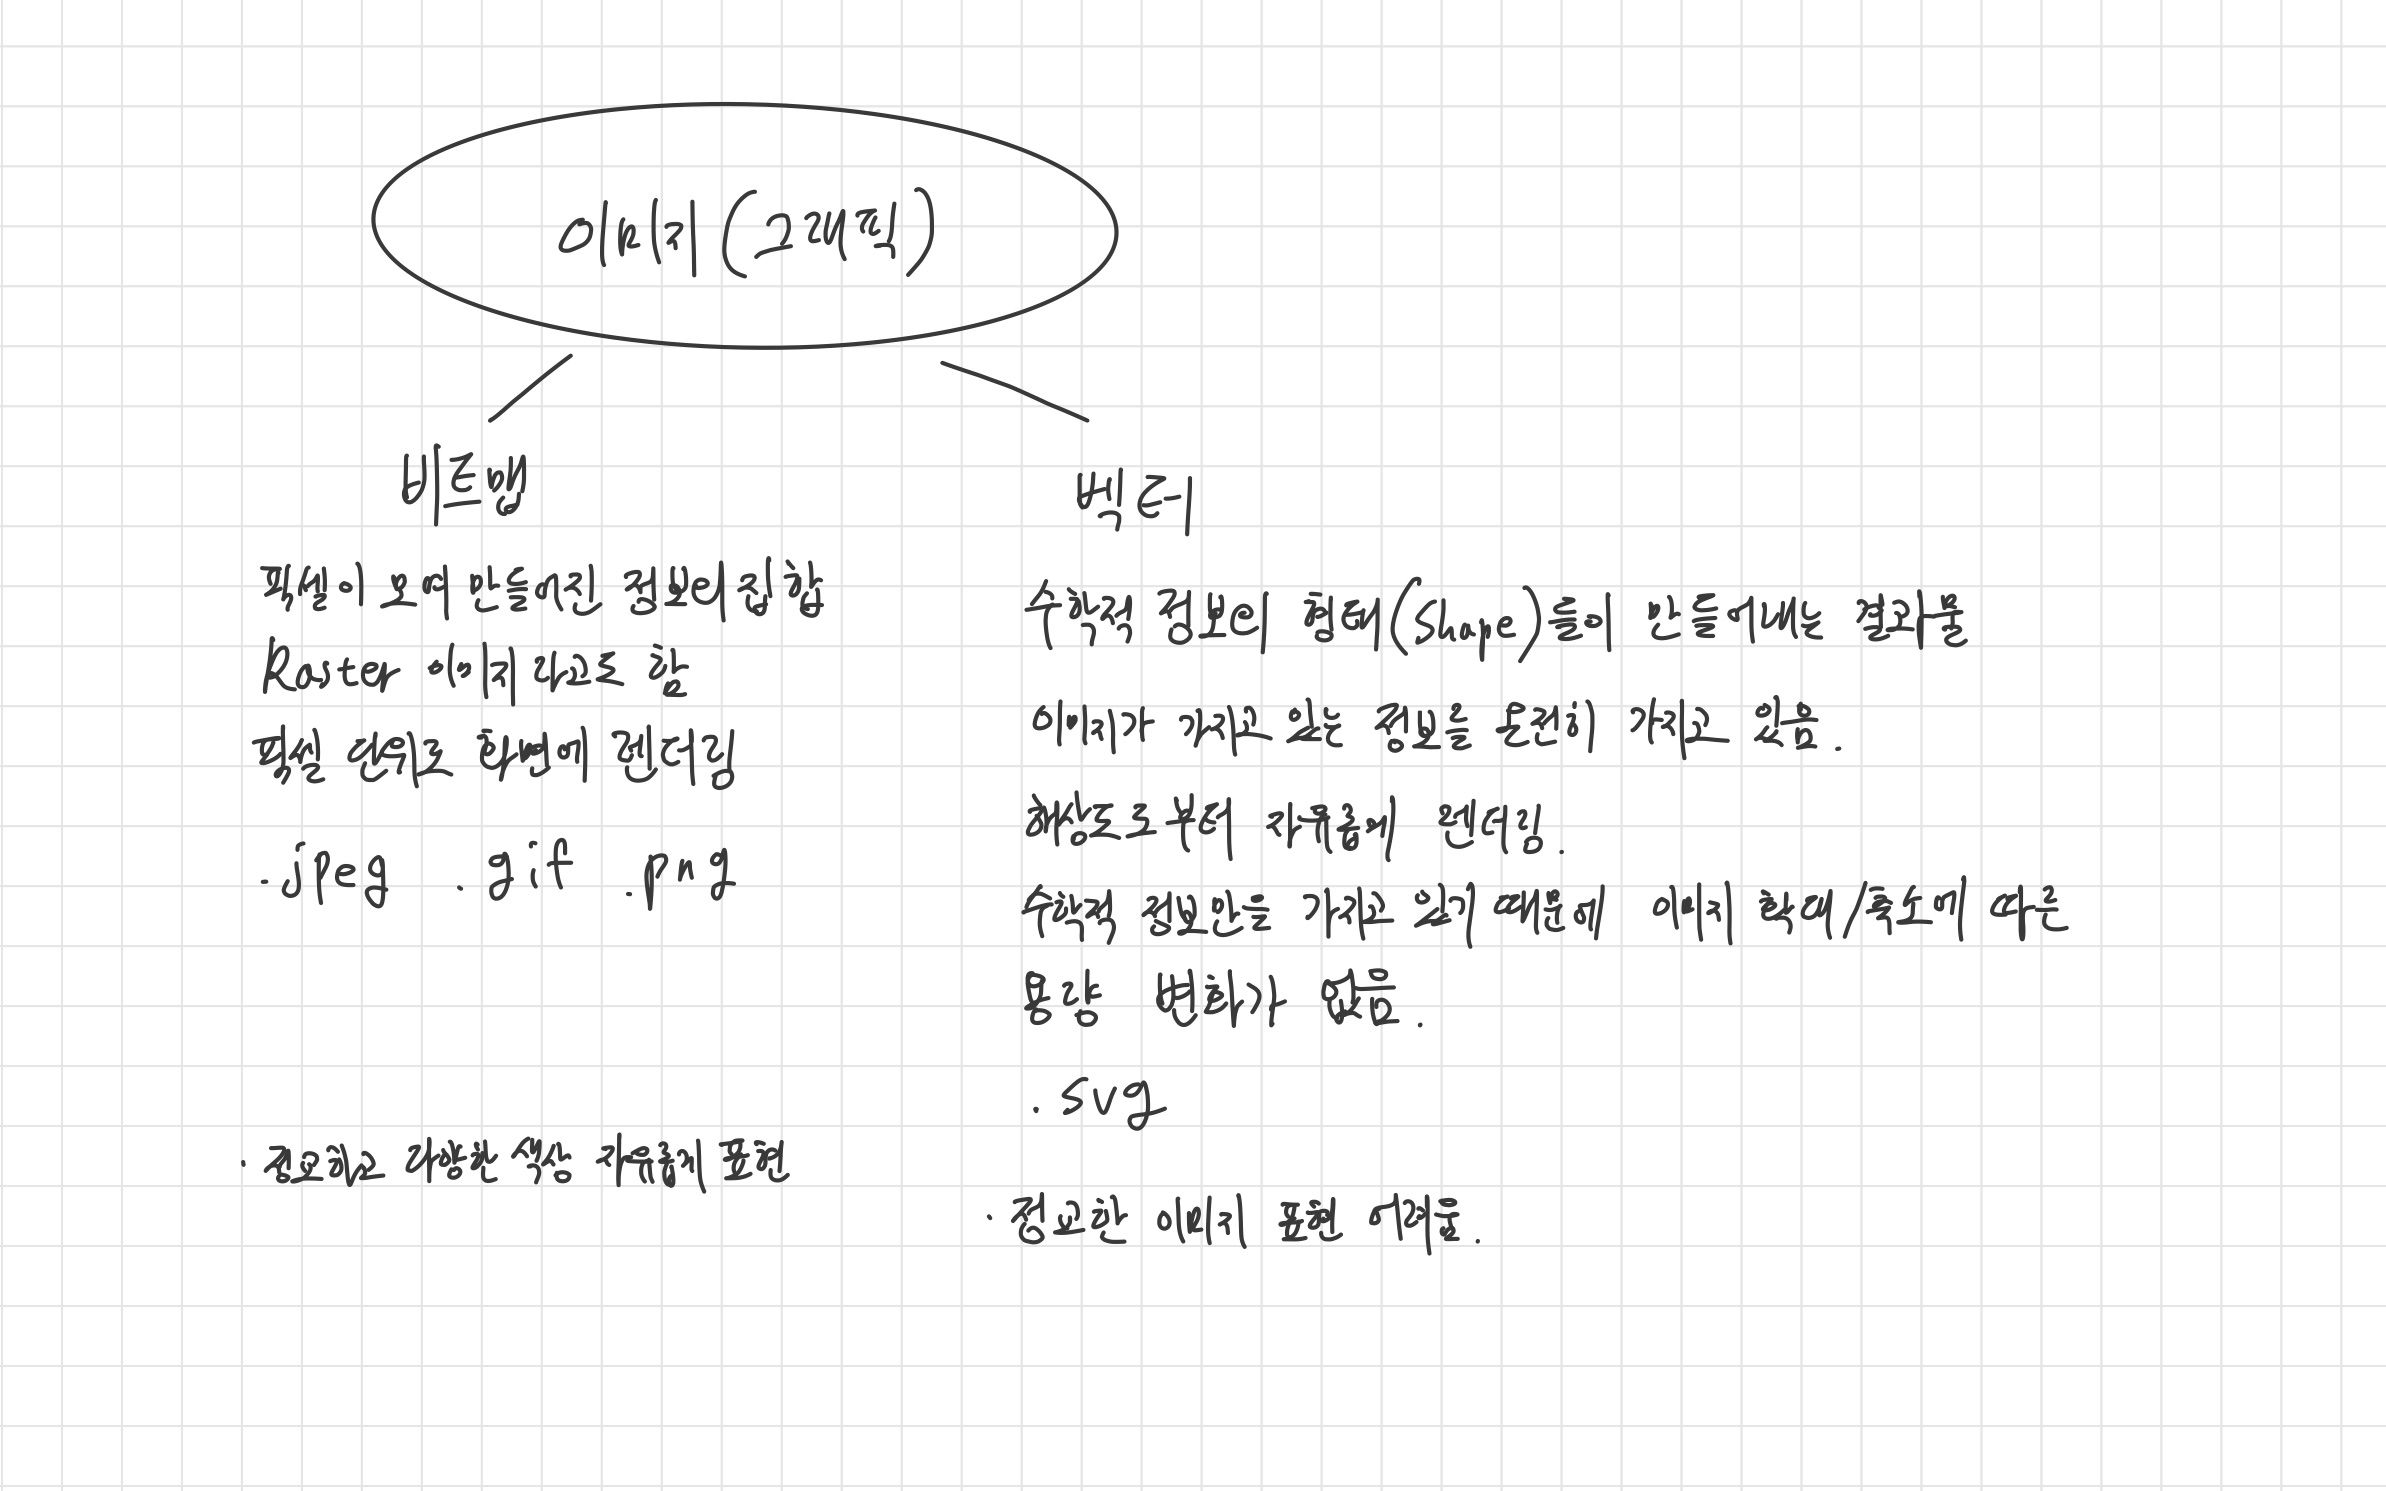 이미지 (그래픽)
비트맵
픽셀이 모여 만들어진 정보의 집합
Raster 이미지 라고도 함
픽셀 단위로 화면에 렌더링
.jpeg .gif .png
· 정교하고 다양한 색상 자유롭게 표현
벡터
수학적 정보의 형태(shape)들이 만들어내는 결과물
이미지가 가지고 있는 정보를 온전히 가지고 있음.
해상도로부터 자유롭게 렌더링.
수학적 정보만을 가지고 있기 때문에 이미지 확대/축소에 따른
용량 변화가 없음.
.svg
· 정교한 이미지 표현 어려움.